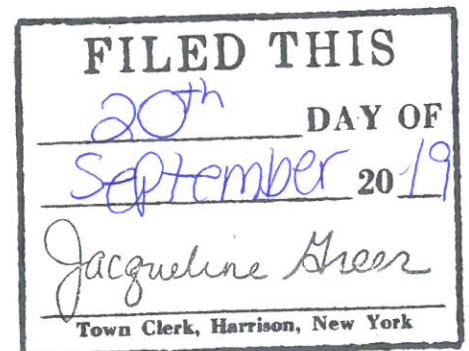 FILED THIS
20th DAY OF
September 2019
Jacqueline Greer
Town Clerk, Harrison, New York